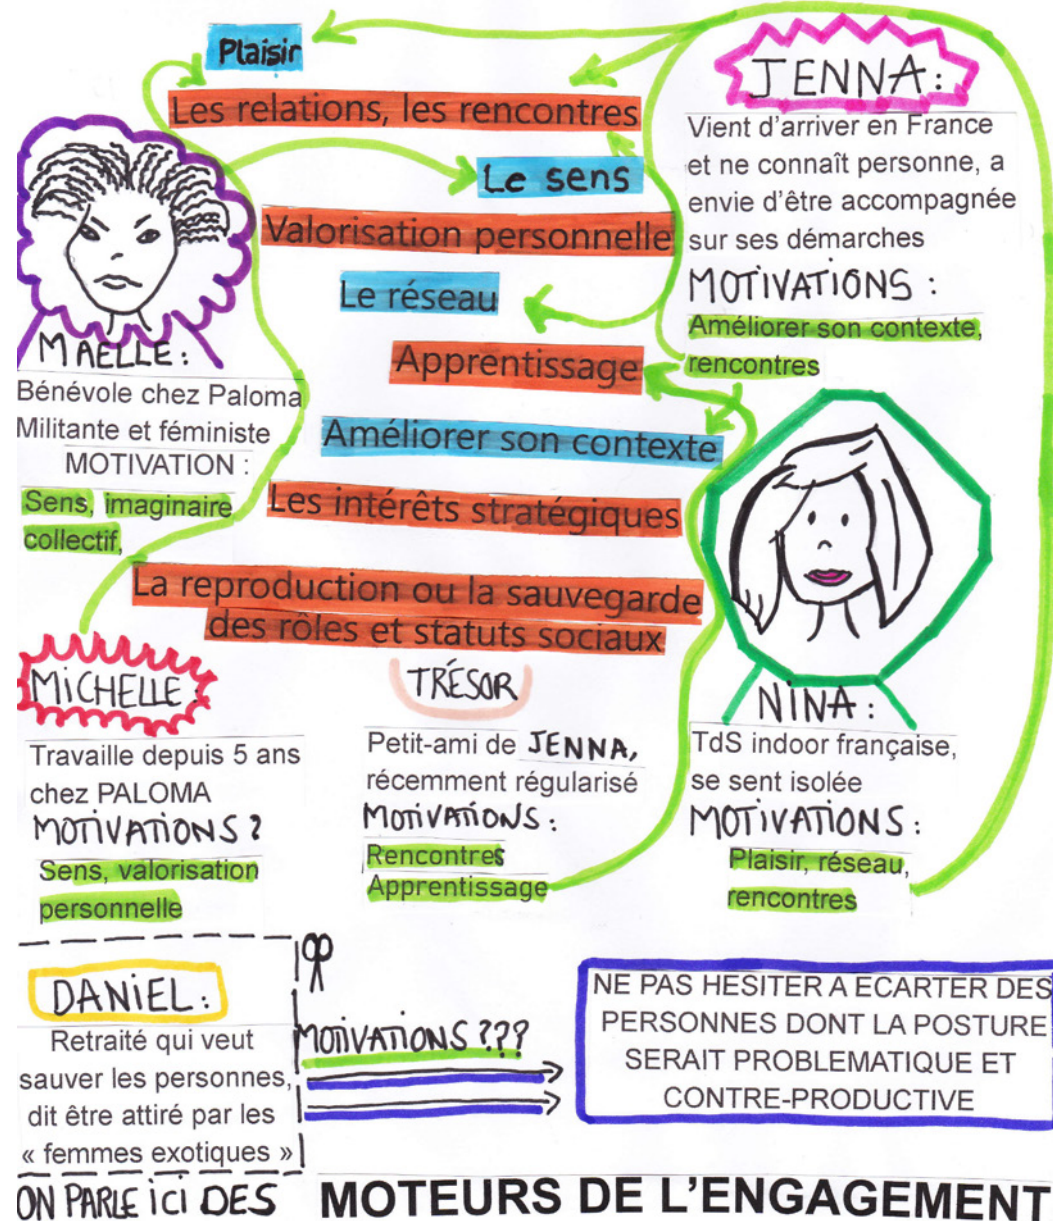 Plaisir
Les relations, les rencontres
Le sens
Valorisation personnelle
Le réseau
Apprentissage
Améliorer son contexte
Les intérêts stratégiques
La reproduction ou la sauvegarde
des rôles et statuts sociaux
JENNA :
Vient d'arriver en France
et ne connaît personne, a
envie d'être accompagnée
sur ses démarches
MOTIVATIONS :
Améliorer son contexte,
rencontres
MAELLE :
Bénévole chez Paloma
Militante et féministe
MOTIVATION :
Sens, imaginaire
collectif,
MICHELLE :
Travaille depuis 5 ans
chez PALOMA
MOTIVATIONS ?
Sens, valorisation
personnelle
TRÉSOR
Petit-ami de JENNA,
récemment régularisé
MOTIVATIONS :
Rencontres
Apprentissage
NINA :
TdS indoor française,
se sent isolée
MOTIVATIONS :
Plaisir, réseau,
rencontres
DANIEL :
Retraité qui veut
sauver les personnes,
dit être attiré par les
« femmes exotiques »
MOTIVATIONS ???
NE PAS HESITER A ECARTER DES
PERSONNES DONT LA POSTURE
SERAIT PROBLEMATIQUE ET
CONTRE-PRODUCTIVE
ON PARLE ICI DES MOTEURS DE L'ENGAGEMENT